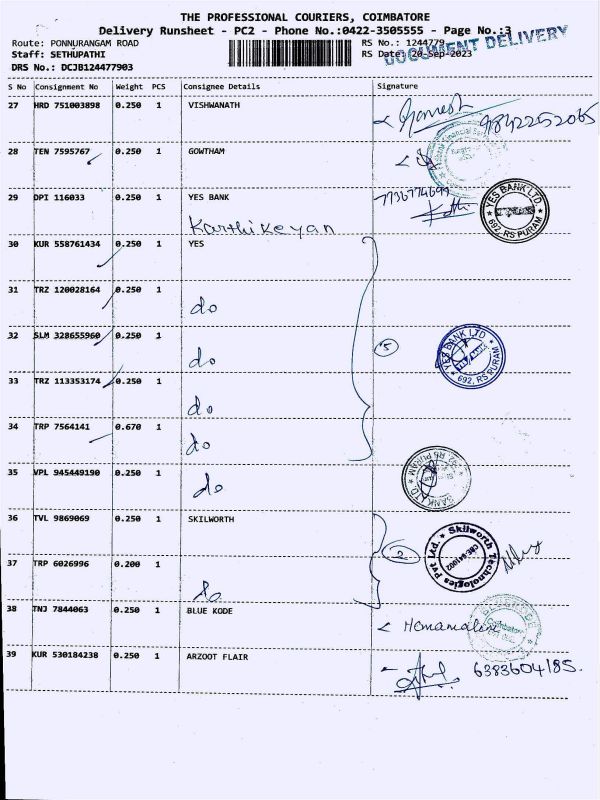 THE PROFESSIONAL COURIERS, COIMBATORE
Delivery Runsheet - PC2 - Phone No.:0422-3505555 - Page No.:3
Route: PONNURANGAM ROAD RS No.: 1244779
Staff: SETHUPATHI RS Date: 20-Sep-2023
DOCUMENT DELIVERY
DRS No.: DCJB124477903
S No Consignment No Weight PCS Consignee Details Signature
27 HRD 751003898 0.250 1 VISHWANATH
9842252065
28 TEN 7595767 0.250 1 GOWTHAM
29 DPI 116033 0.250 1 YES BANK 7736774699
Karthikeyan
YES BANK LTD
692, RS PURAM
30 KUR 558761434 0.250 1 YES
31 TRZ 120028164 0.250 1
do
32 SLM 328655960 0.250 1
do
5
YES BANK LTD
692, RS PURAM
33 TRZ 113353174 0.250 1
do
34 TRP 7564141 0.670 1
do
35 VPL 945449190 0.250 1
do
BANK LTD
RS PURAM
36 TVL 9869069 0.250 1 SKILWORTH
2
Skilworth Technologies Pvt Ltd.
CBE-641002
37 TRP 6026996 0.200 1
do
38 TNJ 7844063 0.250 1 BLUE KODE
39 KUR 530184238 0.250 1 ARZOOT FLAIR
6383604185.